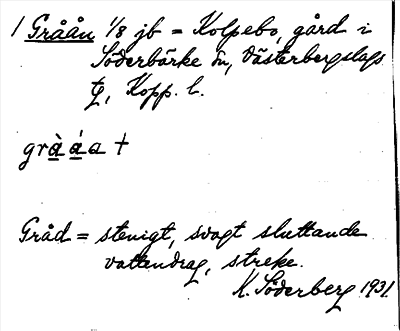 / Gråån 1/8 jb = Kolpebo, gård i
Söderbärke sn, Västerbergslags
tg, Kopp. l.
grå̀ á a †
Gråd = stenigt, svagt sluttande
vattendrag, streke.
K. Söderberg 1931.